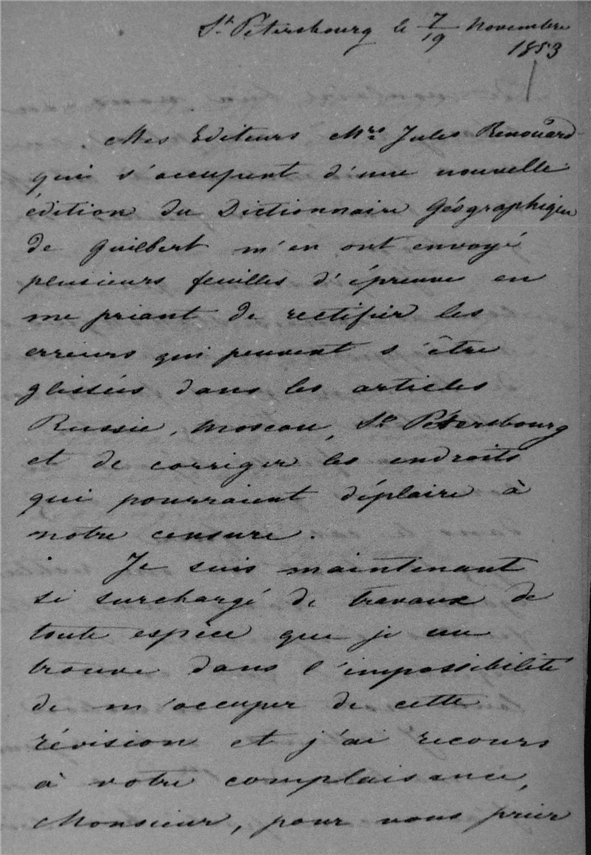 St Petersbourg le 7/19 Novembre
1853
Mes Editeurs Mrs Jules Renouard
qui s'occupent d'une nouvelle
édition du Dictionnaire Géographique
de Guilbert m'en ont envoyé
plusieurs feuilles d'épreuve en
me priant de rectifier les
erreurs qui peuvent s'être
glissées dans les articles
Russie, Moscou, St Pétersbourg
et de corriger les endroits
qui pourraient déplaire à
notre censure.
Je suis maintenant
si surchargé de travaux de
toute espèce que je me
trouve dans l'impossibilité
de m'occuper de cette
révision et j'ai recours
à votre complaisance,
Monsieur, pour vous prier